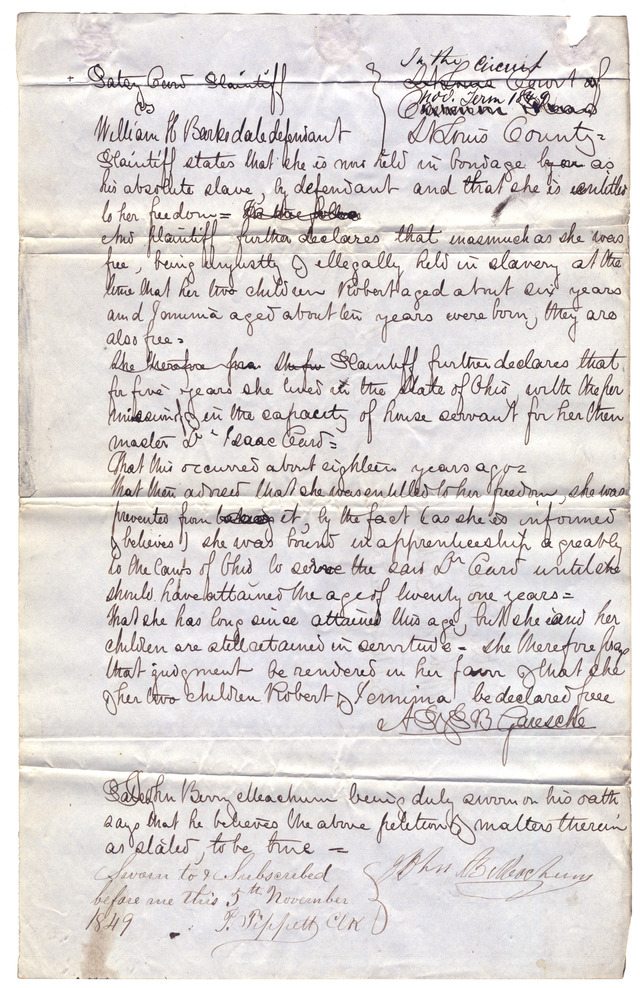 In the Circuit
Satey Ceord Plaintiff St Louis Court of
vs Nov. Term 1849
William H Barksdale defendant St Louis County =
Plaintiff states that she is now held in bondage by as
his absolute slave, by defendant and that she is entitled
to her freedom =
And plaintiff further declares that inasmuch as she was
free, being unjustly & ellegally held in slavery at the
time that her two children Robert aged about six years
and Jemima aged about ten years were born, they are
also free =
She therefore Plaintiff further declares that
for five years she lived in the State of Ohio with the
in the capacity of house servant for her then
master Dr Isaac Ceard =
That this occurred about eighteen years ago =
That then advised that she was entitled to her freedom, she was
prevented from it, by the fact (as she is informed
& believes) she was bound in apprenticeship agreably
to the Laws of Ohio to serve the said Dr Ceard until she
should have attained the age of twenty one years =
That she has long since attained this age, but she and her
children are still detained in servitude = she therefore prays
that judgment be rendered in her favor & that she
& her two children Robert & Jemima be declared free
A S & S B Garesche
John Berry Meachum being duly sworn on his oath
says that he believes the above petition & matters therein
as stated, to be true =
Sworn to & Subscribed John B Meachum
before me this 5th November
1849 P. Tippett Clk